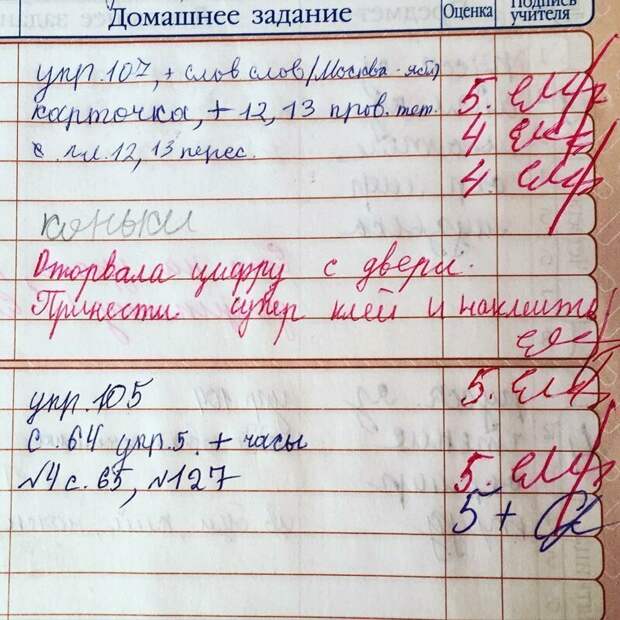 Домашнее задание Оценка Подпись учителя
упр. 107, + слов слов (Москва -
карточка, + 12, 13 пров. тет. 5.
4
12, 13 перес. 4.
коньки
Оторвала цифру с двери.
Принести супер клей и наклеить
упр. 105 5.
с. 64 упр. 5. + часы
№4 с. 65, №127 5.
5+